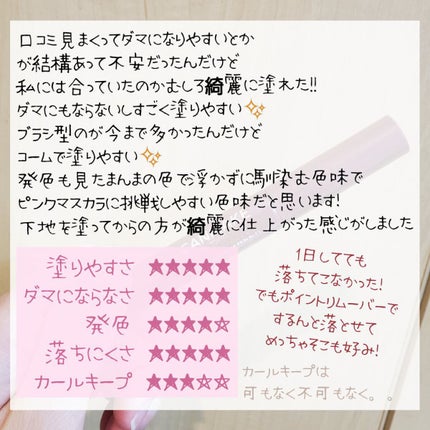 口コミ見まくってダマになりやすいとか
が結構あって不安だったんだけど
私には合っていたのかむしろ綺麗に塗れた!!
ダマにもならないしすごく塗りやすい✨
ブラシ型のが今まで多かったんだけど
コームで塗りやすい✨
発色も見たまんまの色で浮かずに馴染む色味で
ピンクマスカラに挑戦もしやすい色味だと思います!
下地を塗ってからの方が綺麗に仕上がった感じがしました
塗りやすさ ★★★★★
ダマにならなさ ★★★★★
発色 ★★★★☆
落ちにくさ ★★★★★
カールキープ ★★★☆☆
1日してても
落ちてこなかった!
でもポイントリムーバーで
するんと落とせて
めっちゃそこも好み!
カールキープは
可もなく不可もなく。。